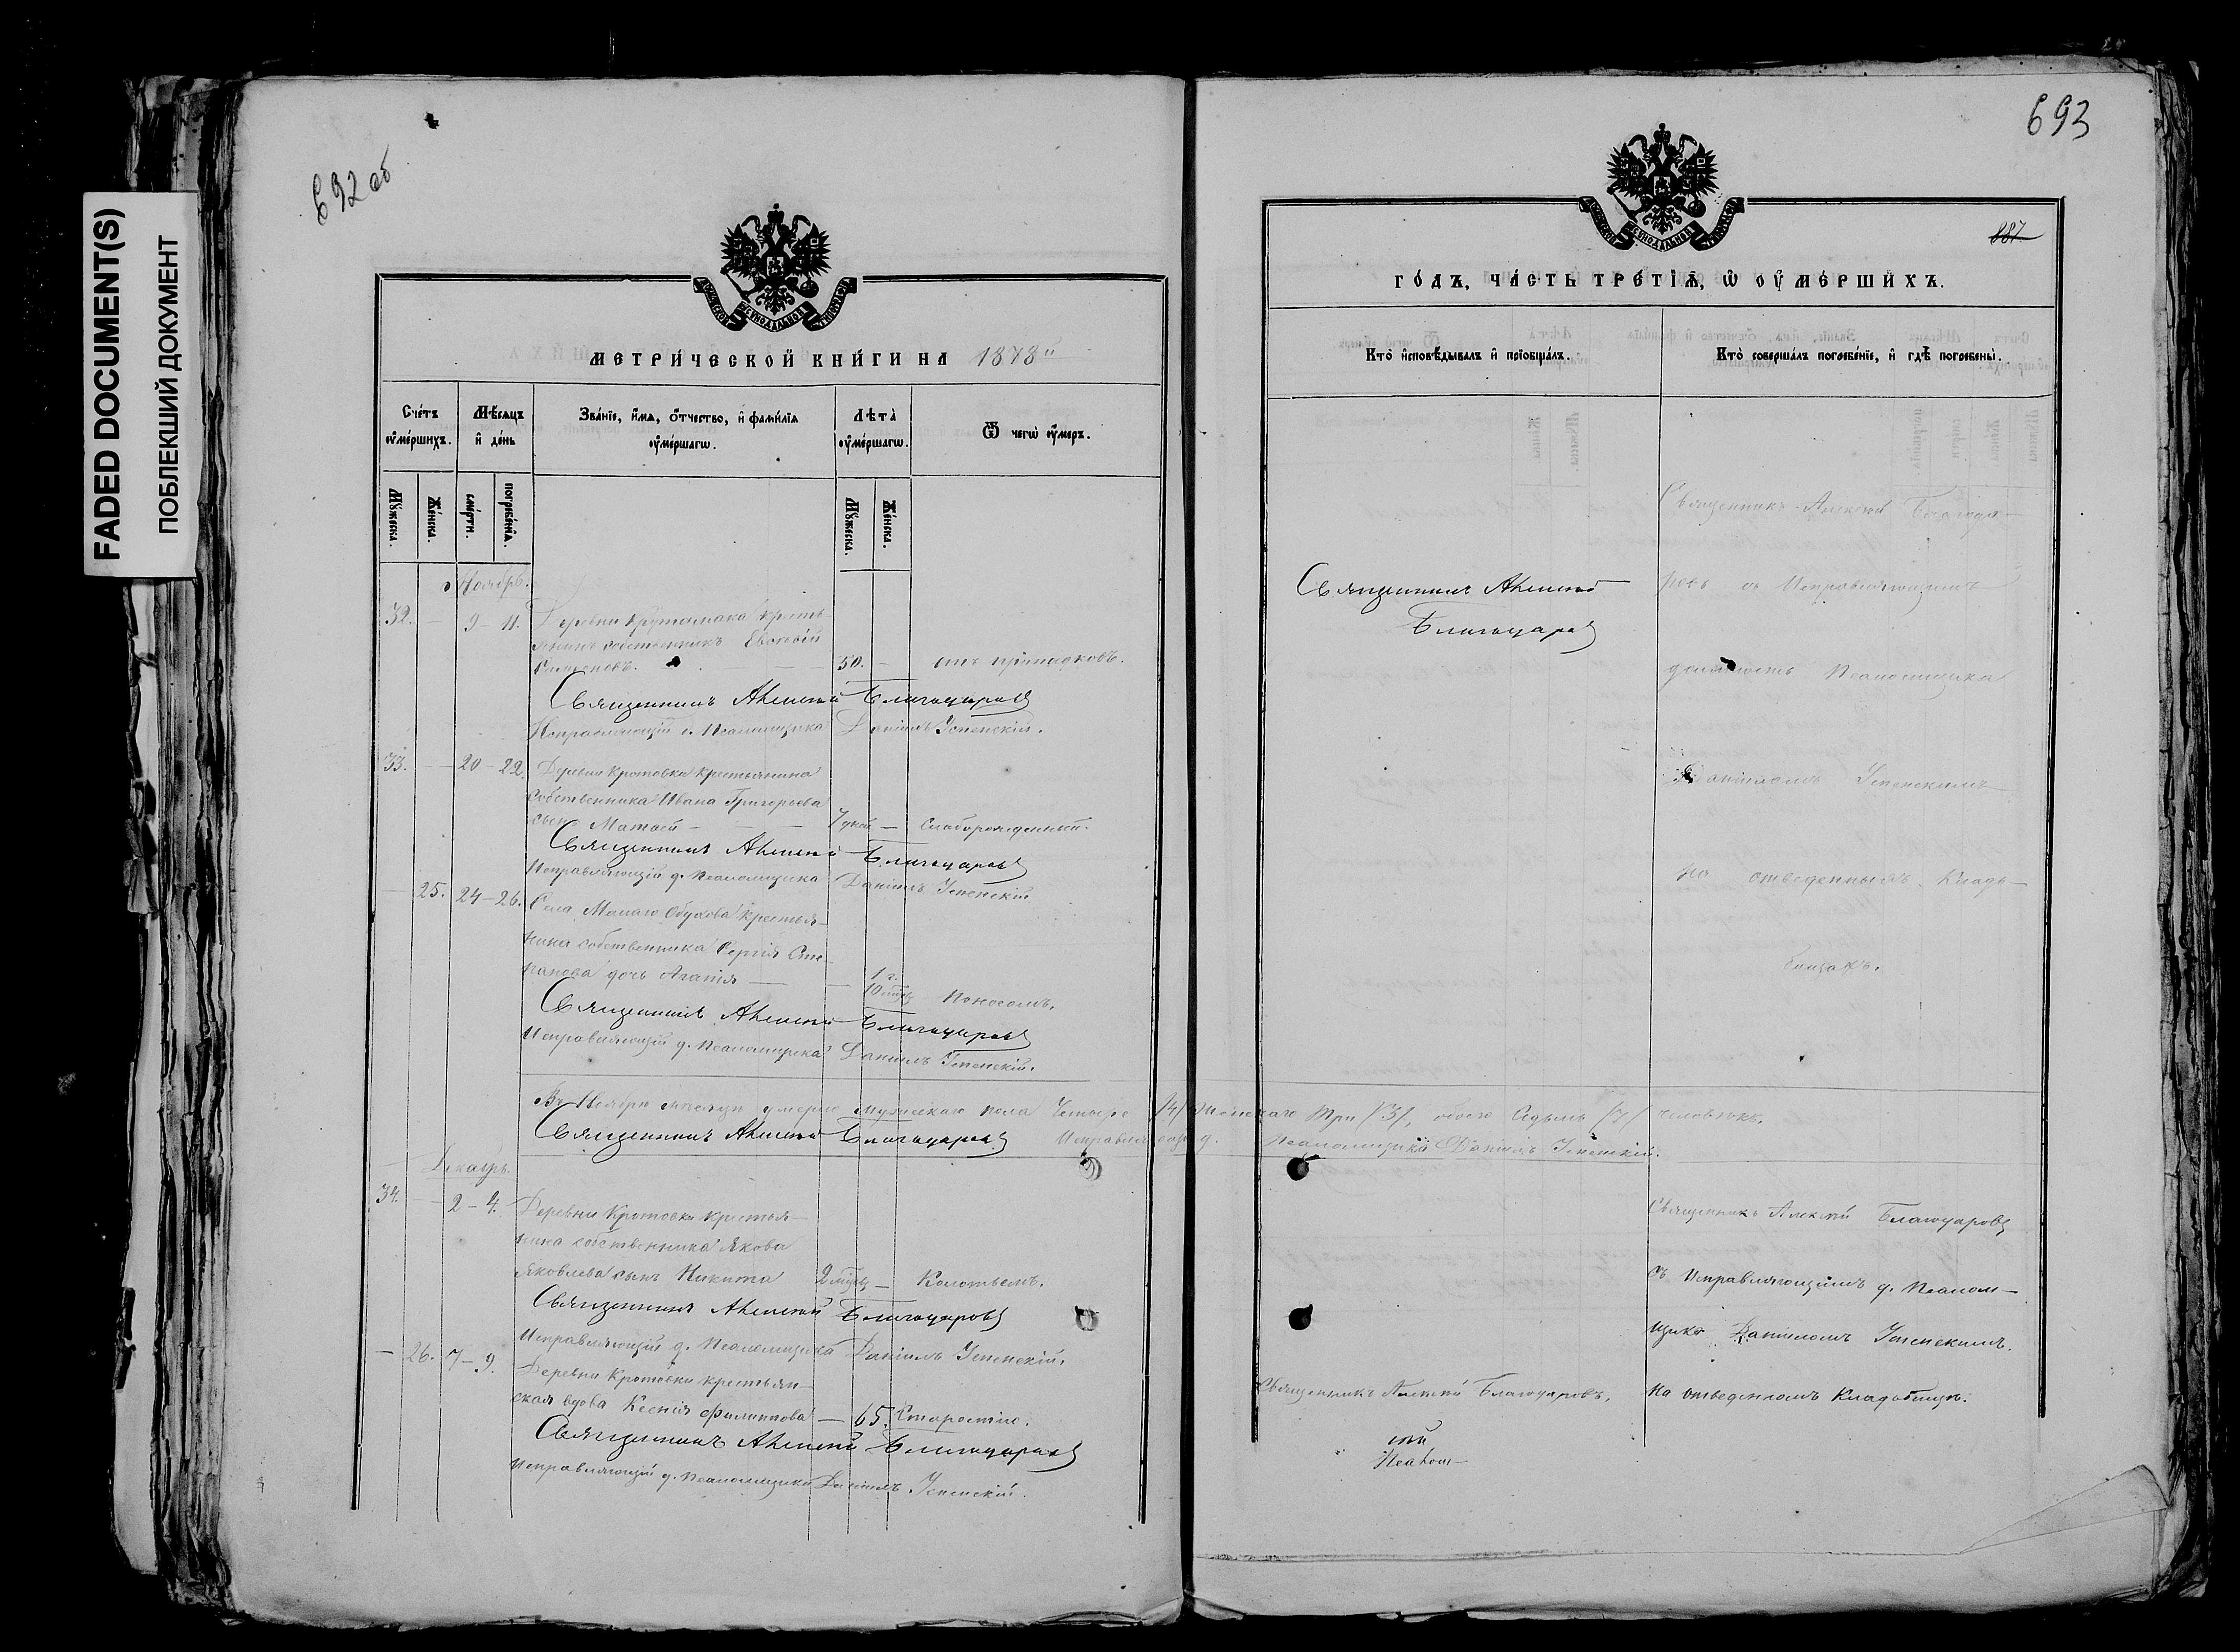 FADED DOCUMENT(S)
ПОБЛЕКШИЙ ДОКУМЕНТ
692 об
МЕТРИ́ЧЕСКОЙ КНИ́ГИ НА 1878й
Сче́тъ оу҆ме́ршихъ.
Мѣ́сяцъ и҆ де́нь
Зва́нїе, и҆́мѧ, ѻ҆́тчество, и҆ фами́лїѧ оу҆ме́ршагѡ.
Лѣта̀ оу҆ме́ршагѡ.
Ѿ чегѡ̀ оу҆́меръ.
Мꙋ́жеска.
Же́нска.
сме́рти.
погребе́нїѧ.
Мꙋ́жеска.
Же́нска.
Ноябрь.
32. — 9 — 11. Деревни крестьянинъ собственникъ
50. — отъ припадковъ.
Священникъ Алексій Благодаровъ
Исправляющій д. Псаломщика Даніилъ Успенскій.
33. — 20 — 22. Деревни Кротовки крестьянина
собственника Ивана Григорьева
сынъ Матѳей — 7 дней — Слаборожденный.
Священникъ Алексій Благодаровъ
Исправляющій д. Псаломщика Даніилъ Успенскій
— 25. 24 — 26. Села Малаго Обухова крестья-
нина собственника Сергія Сте-
панова дочь Агапія — 1 г.
10 мѣсц Поносомъ.
Священникъ Алексій Благодаровъ
Исправляющій д. Псаломщика Даніилъ Успенскій.
Въ Ноябрѣ мѣсяцѣ умерло мужескаго пола Четыре /4/ женскаго три /3/, обоего Седьмь /7/ человѣкъ.
Священникъ Алексій Благодаровъ Исправляющій д. Псаломщика Даніилъ Успенскій.
Декабрь.
34. — 2 — 4. Деревни Кротовки крестья-
нина собственника Якова
Яковлева сынъ Никита 2 мѣсц — Колотьемъ.
Священникъ Алексій Благодаровъ
Исправляющій д. Псаломщика Даніилъ Успенскій.
— 26. 7 — 9. Деревни Кротовки крестьян-
ская вдова Ксенія Филиппова — 65. Старостію.
Священникъ Алексій Благодаровъ
Исправляющій д. Псаломщика Даніилъ Успенскій.
693
887
ГО́ДЪ, ЧА́СТЬ ТРЕ́ТІѦ, Ѡ ОУ҆МЕ́РШИХЪ.
Кто̀ и҆сповѣ́дывалъ и҆ прїобща́лъ.
Кто̀ соверша́лъ погребе́нїе, и҆ гдѣ̀ погребены̀.
Священникъ Алексій Благода-
Священникъ Алексій
Благодаровъ
ровъ съ Исправляющимъ
должность Псаломщика
Даніиломъ Успенскимъ
на отведенныхъ Кладь-
бищахъ.
Священникъ Алексій Благодаровъ
съ Исправляющимъ д. Псалом-
щика Даніиломъ Успенскимъ.
Священникъ Алексій Благодаровъ,
на отведенномъ Кладбищѣ.